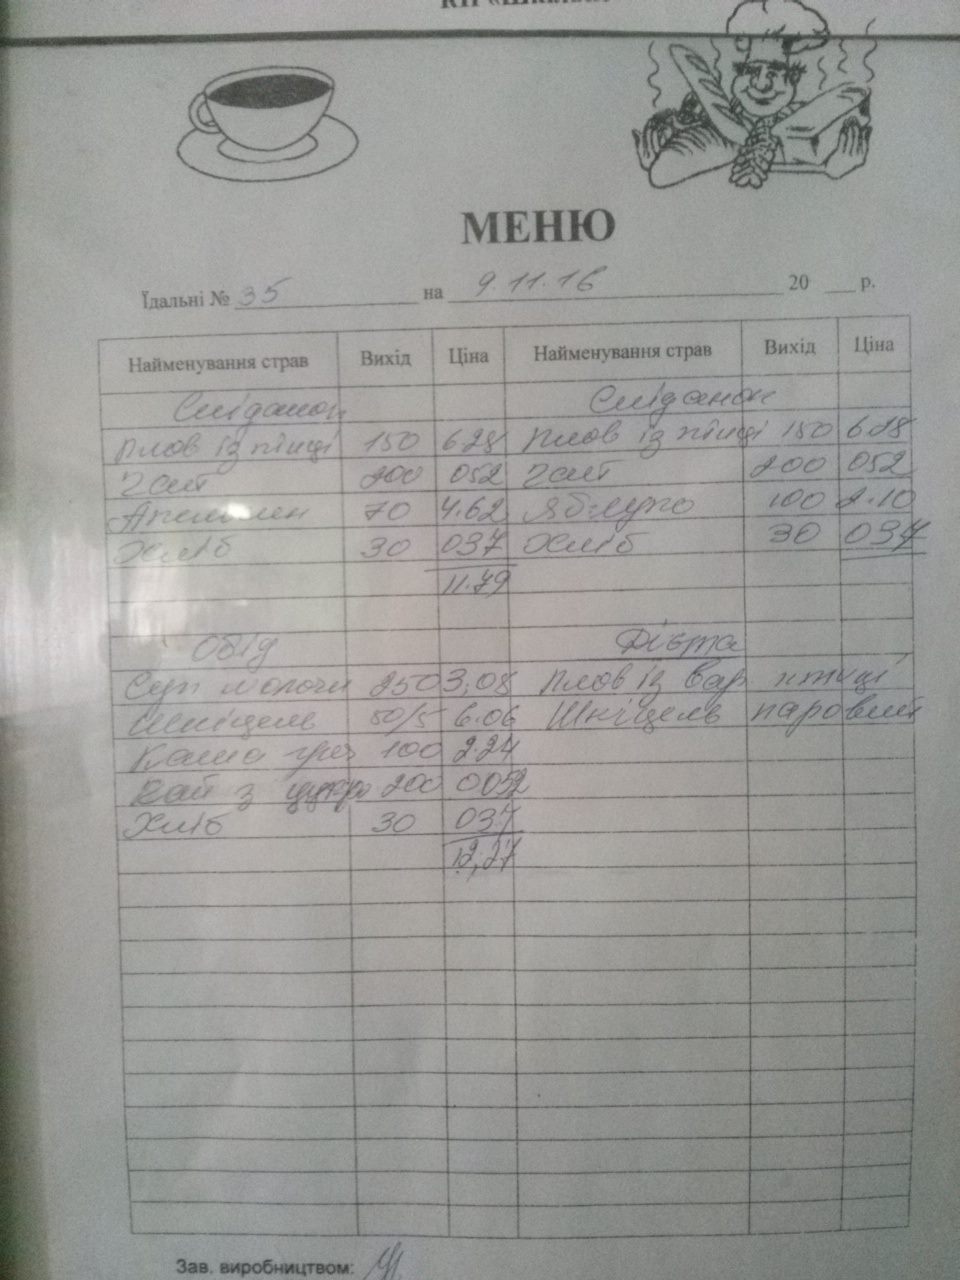 МЕНЮ
Їдальні № 35 на 9.11.16 20 р.
Найменування страв Вихід Ціна Найменування страв Вихід Ціна
Сніданок Сніданок
Плов із птиці 150 6.28 Плов із птиці 150 6.28
Чай 200 052 Чай 200 052
Апельсин 70 4.62 Яблуко 100 2.10
Хліб 30 037 Хліб 30 037
11.79
Обід Дієта
Суп молочн 250 3,08 Плов із вар. птиці
Шніцель 50/5 6.06 Шніцель паровий
Каша греч 100 2.24
Чай з цукро 200 0052
Хліб 30 037
12,27
Зав. виробництвом: